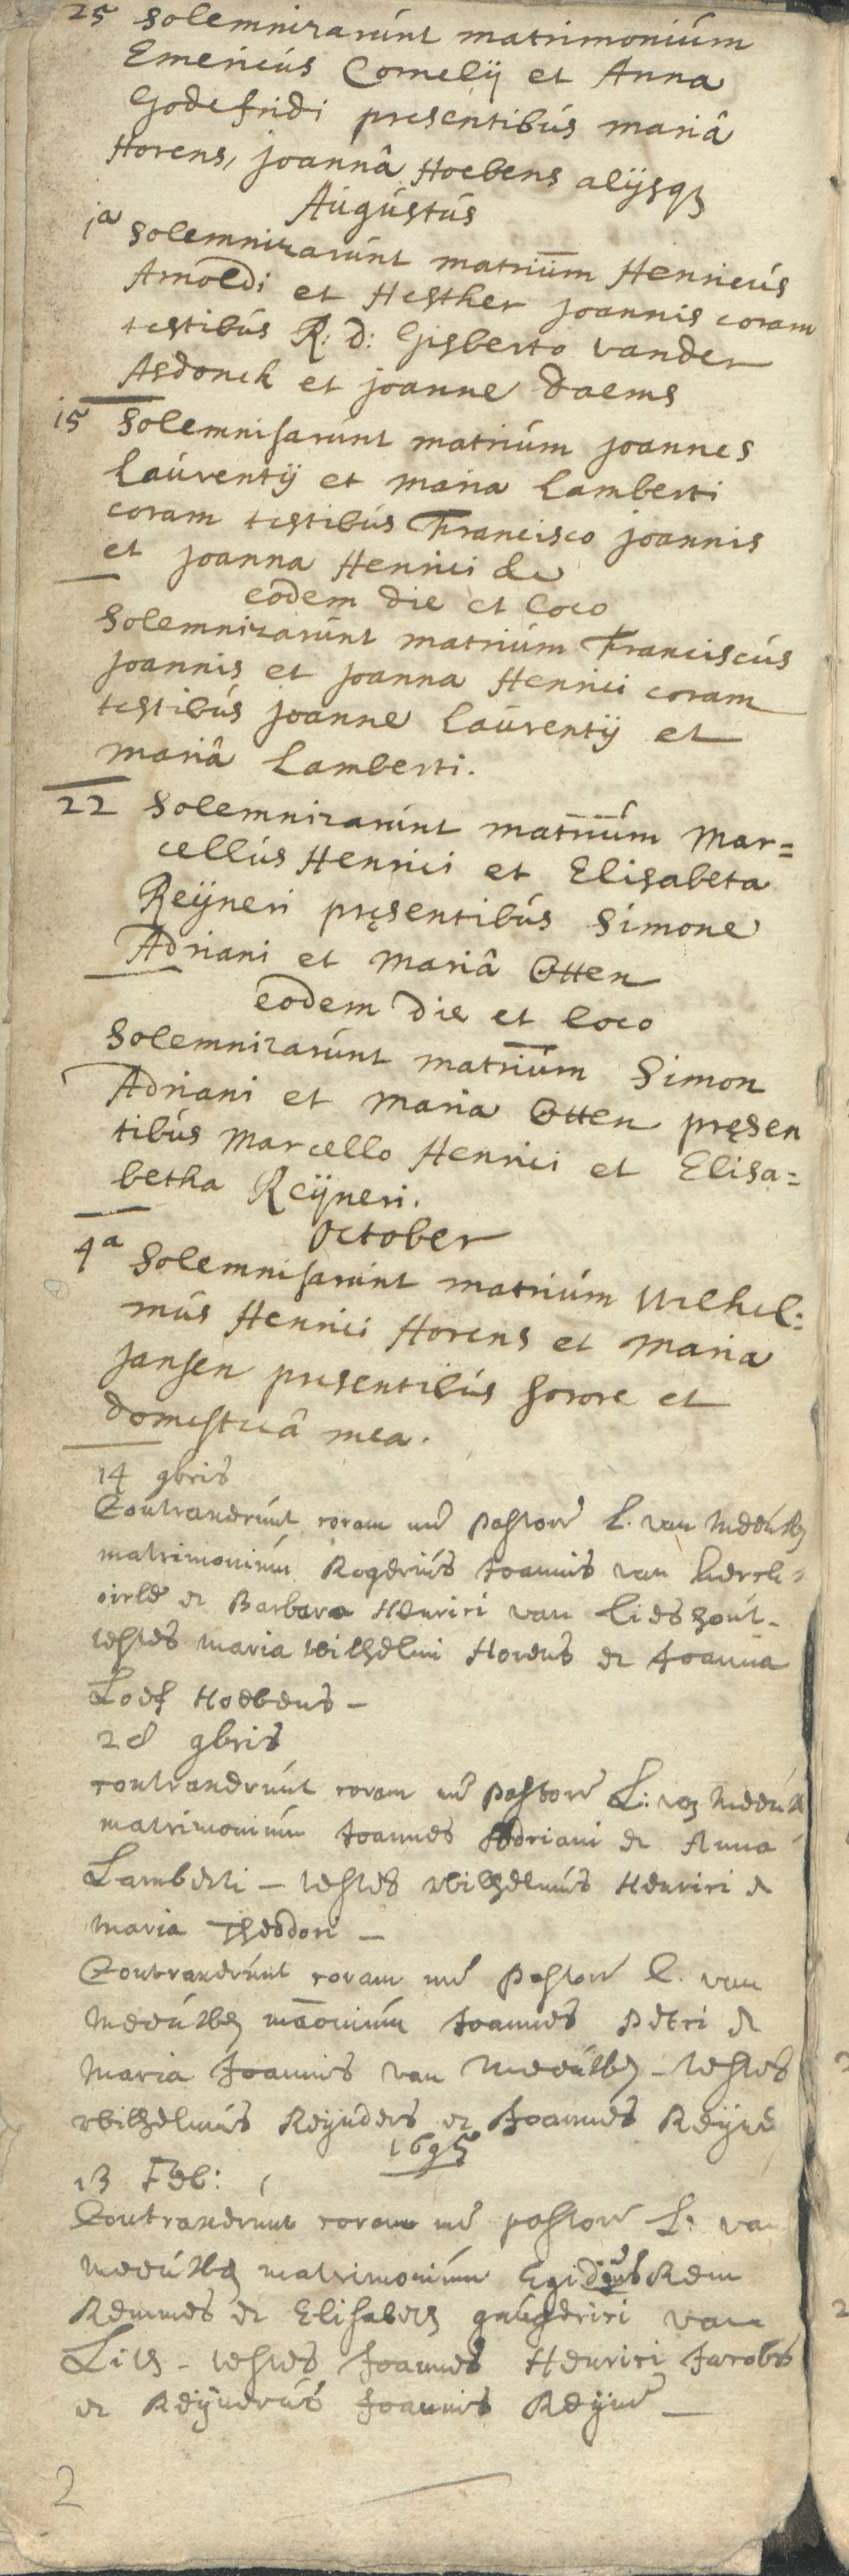 25 solemnizarunt matrimonium
Emericus Cornelij et Anna
Godefridi presentibus mariâ
Horens, joannâ Hoebens alijsqȝ
Augustus
1a solemnizarunt matrium Henricus
Arnoldi et Hesther joannis coram
testibus R: d: Gisberto vander
Asdonck et joanne daems
15 solemnisarunt matrium joannes
Laurentij et maria Lamberti
coram testibus Francisco joannis
et joanna Henrici &c
eodem die et loco
solemnizarunt matrium Franciscus
joannis et joanna Henrici coram
testibus joanne Laurentij et
mariâ Lamberti.
22 solemnizarunt matrium Mar=
cellus Henrici et Elisabeta
Reijneri pręsentibus Simone
Adriani et mariâ Otten
eodem die et loco
solemnizarunt matrium Simon
Adriani et maria Otten pręsen
tibus Marcello Henrici et Elisa=
betha Reijneri.
October
4a solemnisarunt matrium Wilhel:
mus Henrici Horens et maria
jansen presentibus sorore et
domesticâ mea.
14 9bris
Contraxerunt coram me pastore L. van
matrimonium Rogerius Joannis van kerck=
oirle et Barbara Henrici van lieshout-
testes maria wilhelmi Horens et Joanna
Loef Hoebens -
28 9bris
contraxerunt coram me pastore L:
matrimonium Joannes Adriani et Anna
Lamberti - testes wilhelmus Henrici et
maria Theodori -
Contraxerunt coram me pastore L. van
Joannes Petri et
maria Joannis van - testes
wilhelmus Reijnders et Joannes
1695
13 Feb:
Contraxerunt coram me pastore L: van
matrimonium Egidius
et Elisabeth van
Lith - testes Joannes Henrici Jacobs
et Reijnerus Joannis
2